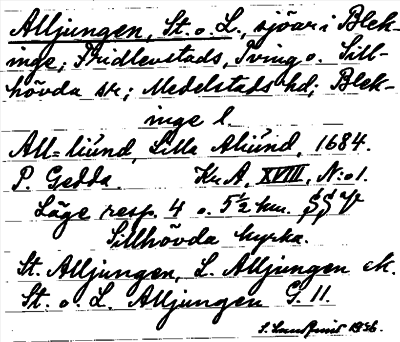 Alljungen, St. o. L., sjöar i Blek-
inge; Fridlevstads, Tving o. Sill-
hövda sr; Medelstads hd; Blek-
inge l.
All=liúnd, Lilla Aliúnd, 1684.
P. Gedda. Kr. A, XVIII, N:o 1.
Läge resp. 4 o. 5½ km.
Sillhövda kyrka.
St. Alljungen, L. Alljungen ek.
St. o. L. Alljungen G. 11.
1936.